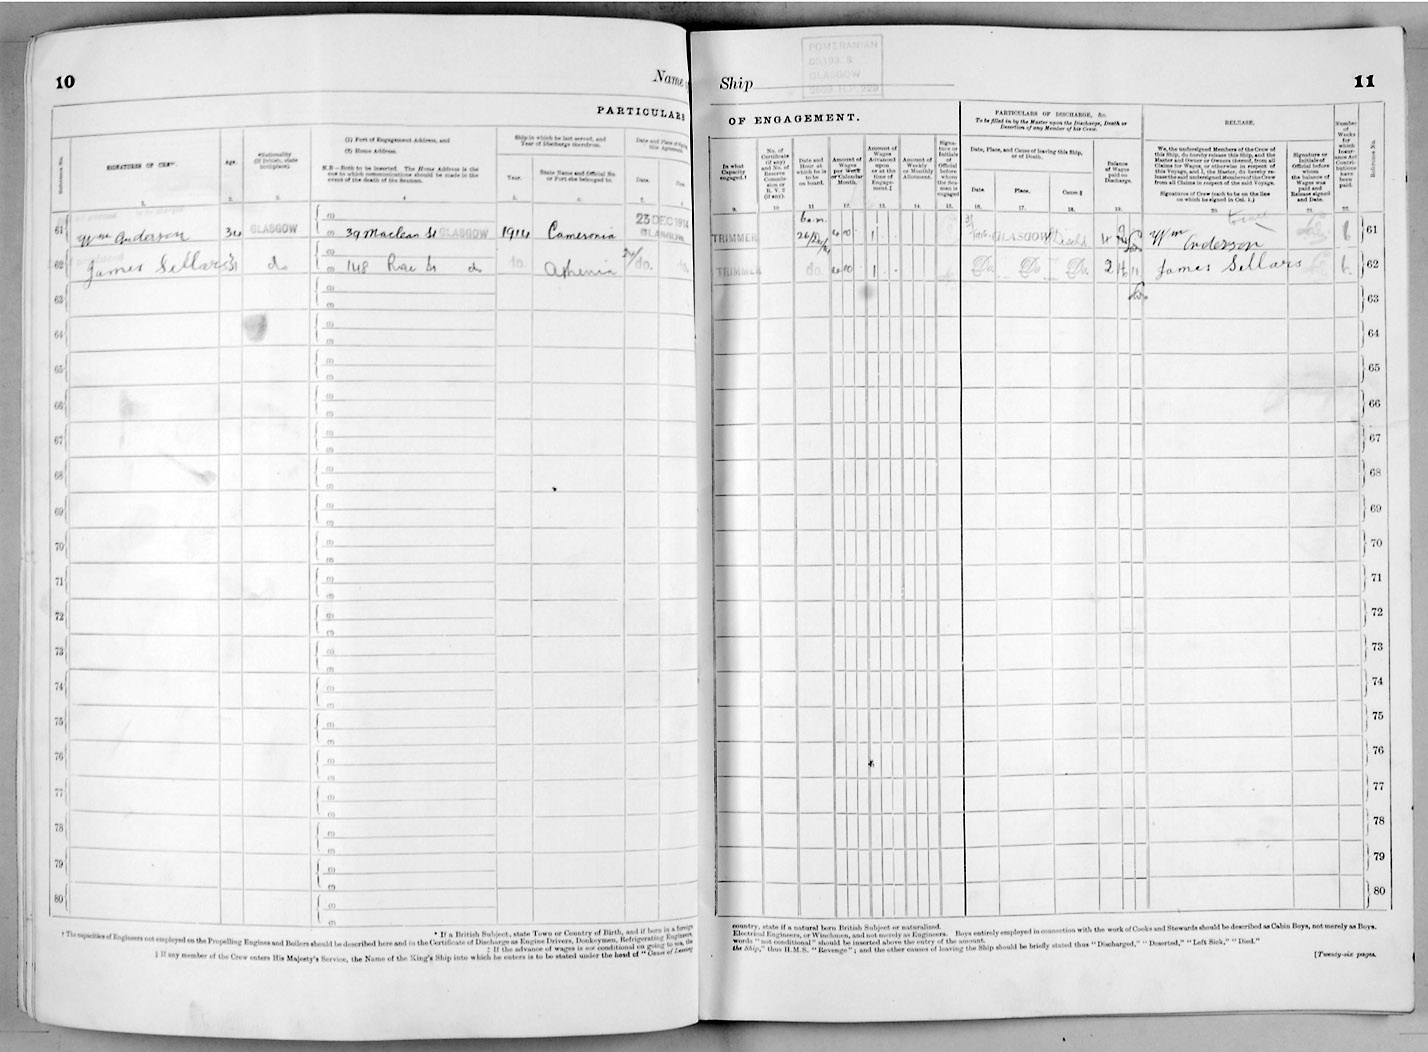 10
Name
PARTICULARS
Reference No.
SIGNATURES OF CREW.
Age.
*Nationality
(If British, state
birthplace).
(1) Port of Engagement Address, and
(2) Home Address.
N.B.—Both to be inserted. The Home Address is the
one to which communications should be made in the
event of the death of the Seaman.
Ship in which he last served, and
Year of Discharge therefrom.
Year.
State Name and Official No.
or Port she belonged to.
Date and Place of
this Agreement.
Date.
1.
2.
3.
4
5.
6.
7.
61
Wm Anderson
34
GLASGOW
(1)
(2)
39 Maclean St GLASGOW
1914
Cameronia
23 DEC 1914
GLASGOW
62
James Sellars
31
do
148 Rae St do
do.
Athenia
24/do.
63
64
65
66
67
68
69
70
71
72
73
74
75
76
77
78
79
80
* If a British Subject, state Town or Country of Birth, and if born in a foreign
† The capacities of Engineers not employed on the Propelling Engines and Boilers should be described here and in the Certificate of Discharge as Engine Drivers, Donkeymen, Refrigerating Engineers,
‡ If the advance of wages is not conditional on going to sea, the
§ If any member of the Crew enters His Majesty's Service, the Name of the King's Ship into which he enters is to be stated under the head of "Cause of Leaving
Ship
POMERANIAN
GLASGOW
11
OF ENGAGEMENT.
PARTICULARS OF DISCHARGE, &c.
To be filled in by the Master upon the Discharge, Death or
Desertion of any Member of his Crew.
RELEASE.
In what
Capacity
engaged.†
No. of
Certificate
(if any)
and No. of
Reserve
Commis-
sion or
R. V. 2
(if any).
Date and
Hour at
which he is
to be
on board.
Amount of
Wages
per Week
or Calendar
Month.
Amount of
Wages
Advanced
upon
or at the
time of
Engage-
ment.‡
Amount of
Weekly
or Monthly
Allotment.
Signa-
ture or
Initials
of
Official
before
whom
the Sea-
man is
engaged
Date, Place, and Cause of leaving this Ship,
or of Death.
Date.
Place.
Cause.§
Balance
of Wages
paid on
Discharge.
We, the undersigned Members of the Crew of
this Ship, do hereby release this Ship, and the
Master and Owner or Owners thereof, from all
Claims for Wages, or otherwise, in respect of
this Voyage, and I, the Master, do hereby re-
lease the said undersigned Members of the Crew
from all Claims in respect of the said Voyage.
Signatures of Crew (each to be on the line
on which he signed in Col. 1.)
Signature or
Initials of
Official before
whom
the balance of
Wages was
paid and
Release signed
and Date.
Number
of
Weeks
for
which
Insur-
ance Act
Contri-
butions
have
been
paid.
Reference No.
9.
10
11
12.
13.
14.
15.
16.
17.
18.
19.
20.
21.
22.
TRIMMER
6 a.m.
GLASGOW
Disch
Wm Anderson
6
61
TRIMMER
do.
Do.
Do.
Do.
James Sellars
6
62
63
64
65
66
67
68
69
70
71
72
73
74
75
76
77
78
79
80
country, state if a natural born British Subject or naturalized.
Electrical Engineers, or Winchmen, and not merely as Engineers. Boys entirely employed in connection with the work of Cooks and Stewards should be described as Cabin Boys, not merely as Boys.
words "not conditional" should be inserted above the entry of the amount.
the Ship," thus H.M.S. "Revenge"; and the other causes of leaving the Ship should be briefly stated thus "Discharged," "Deserted," "Left Sick," "Died."
[Twenty-six pages.